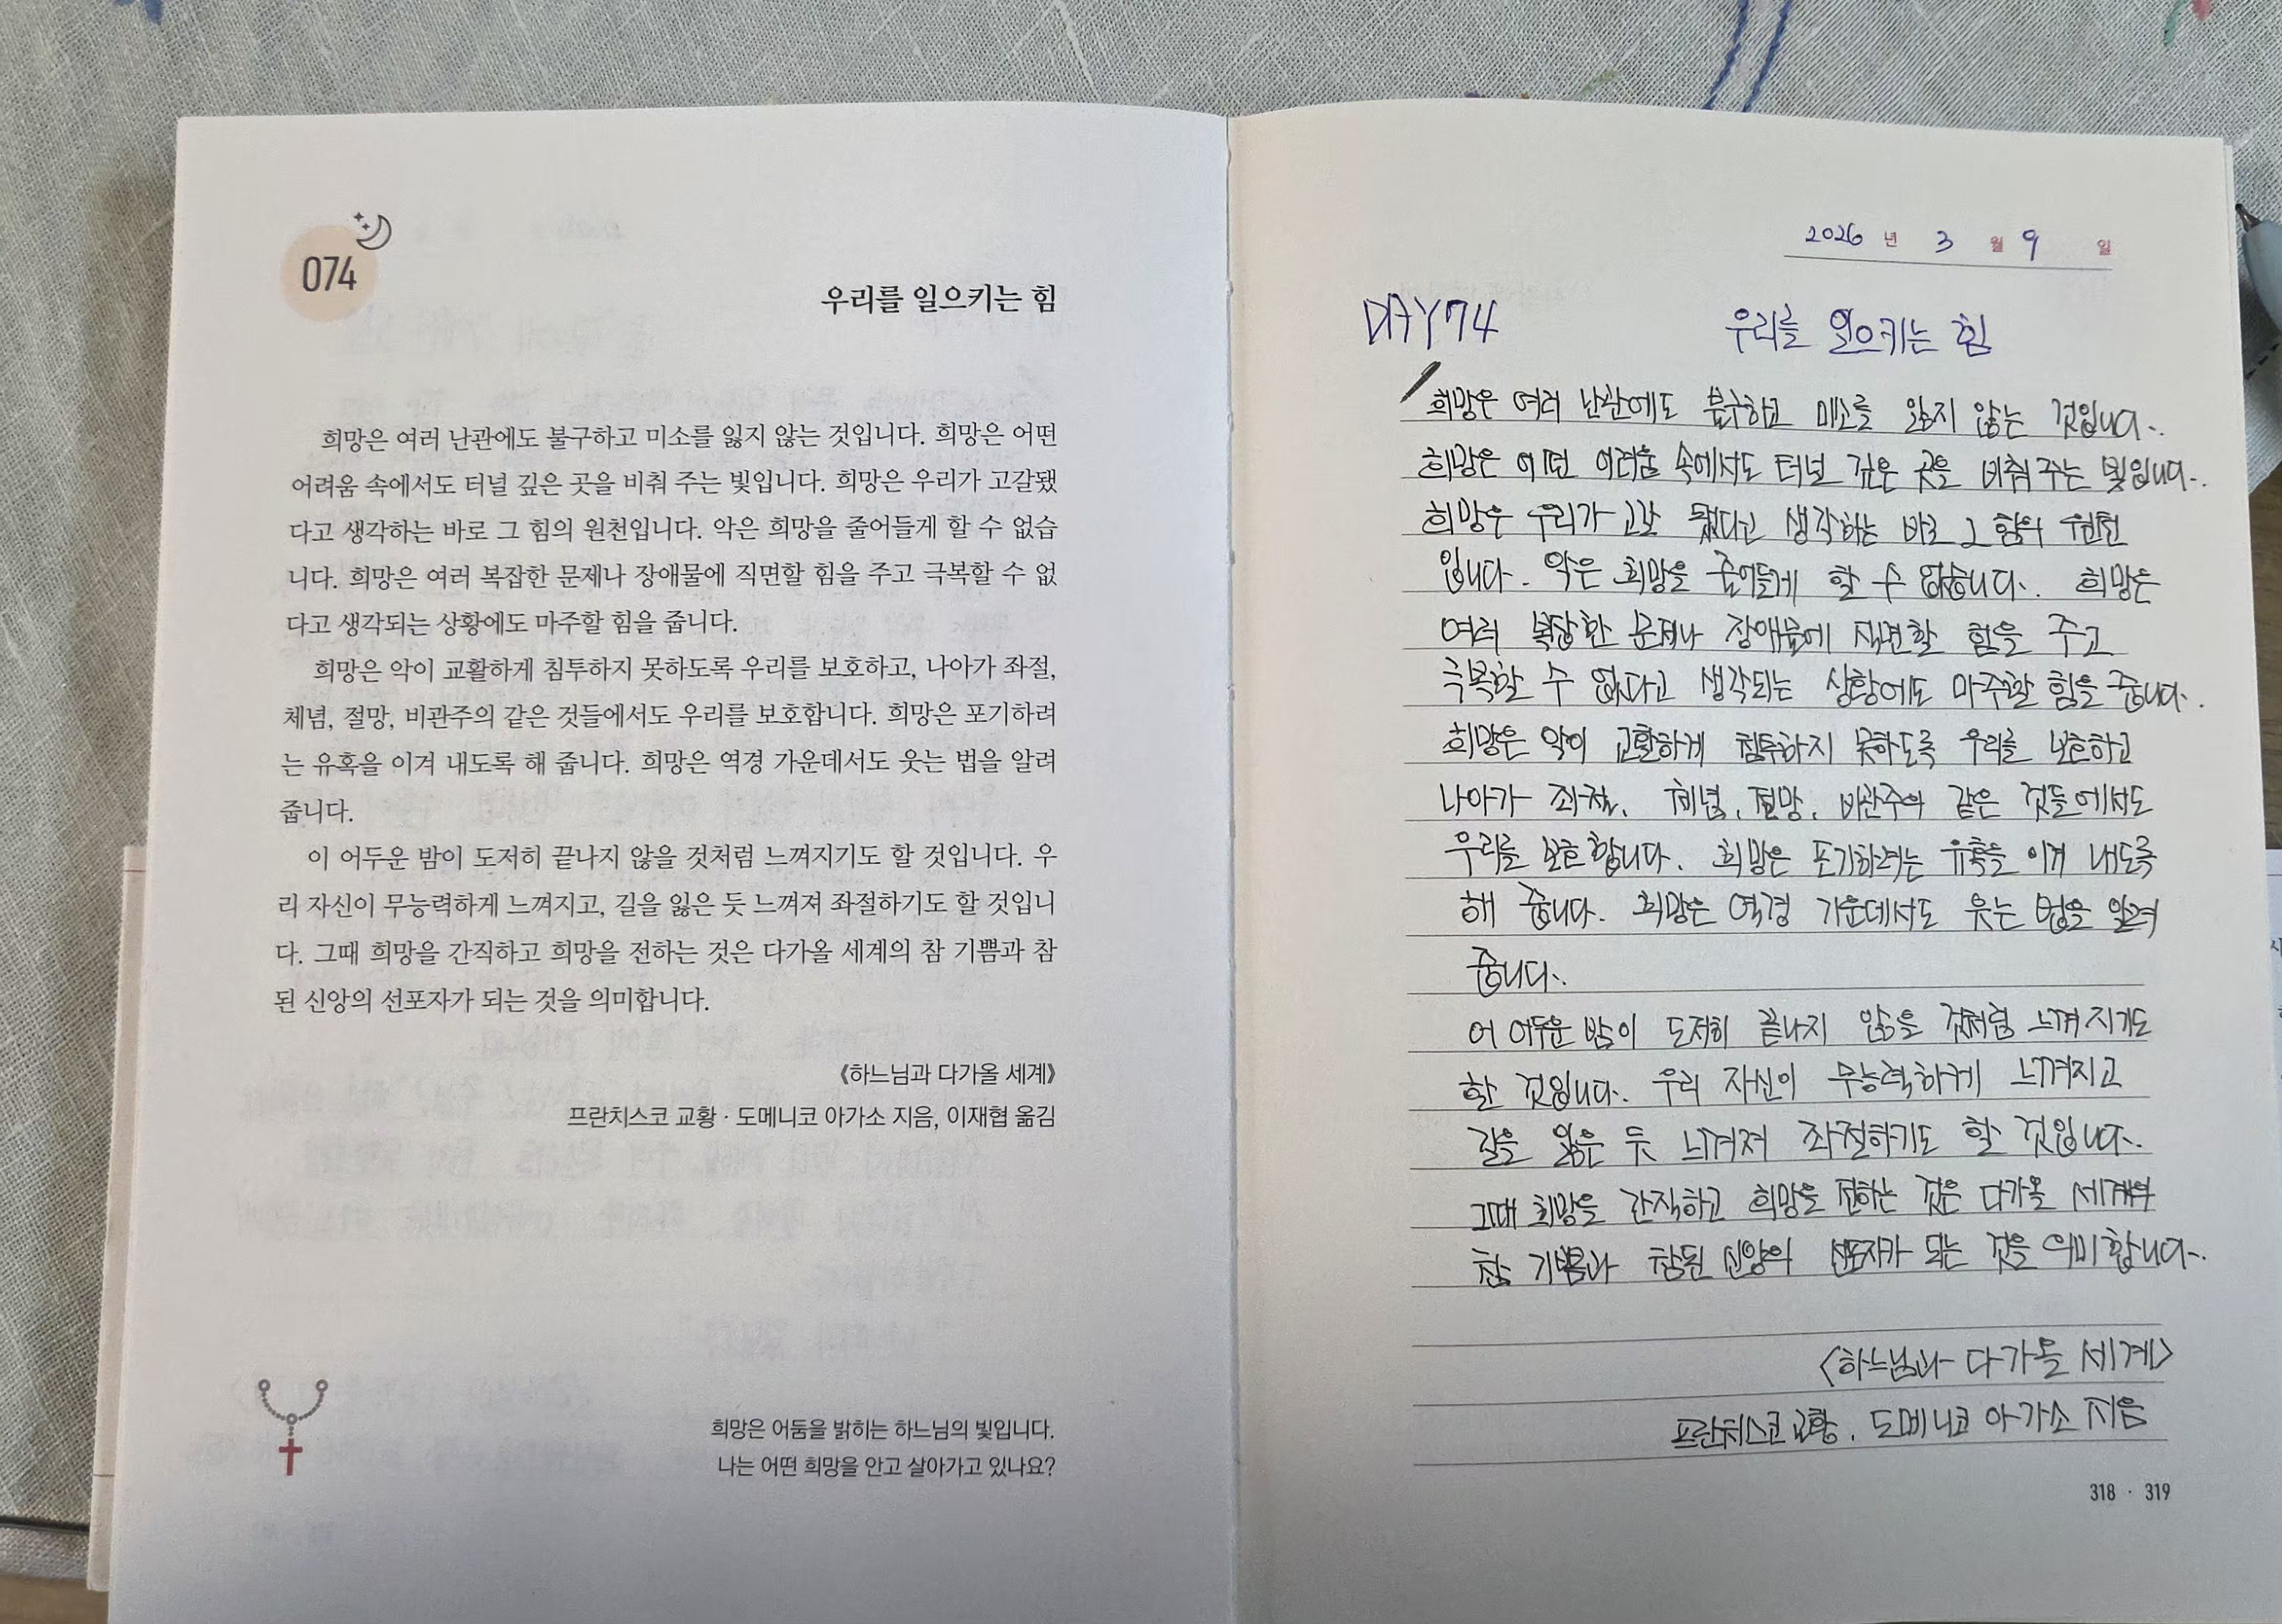 074
우리를 일으키는 힘
희망은 여러 난관에도 불구하고 미소를 잃지 않는 것입니다. 희망은 어떤
어려움 속에서도 터널 깊은 곳을 비춰 주는 빛입니다. 희망은 우리가 고갈됐
다고 생각하는 바로 그 힘의 원천입니다. 악은 희망을 줄어들게 할 수 없습
니다. 희망은 여러 복잡한 문제나 장애물에 직면할 힘을 주고 극복할 수 없
다고 생각되는 상황에도 마주할 힘을 줍니다.
희망은 악이 교활하게 침투하지 못하도록 우리를 보호하고, 나아가 좌절,
체념, 절망, 비관주의 같은 것들에서도 우리를 보호합니다. 희망은 포기하려
는 유혹을 이겨 내도록 해 줍니다. 희망은 역경 가운데서도 웃는 법을 알려
줍니다.
이 어두운 밤이 도저히 끝나지 않을 것처럼 느껴지기도 할 것입니다. 우
리 자신이 무능력하게 느껴지고, 길을 잃은 듯 느껴져 좌절하기도 할 것입니
다. 그때 희망을 간직하고 희망을 전하는 것은 다가올 세계의 참 기쁨과 참
된 신앙의 선포자가 되는 것을 의미합니다.
《하느님과 다가올 세계》
프란치스코 교황 · 도메니코 아가소 지음, 이재협 옮김
희망은 어둠을 밝히는 하느님의 빛입니다.
나는 어떤 희망을 안고 살아가고 있나요?
2026 년 3 월 9 일
DAY74 우리를 일으키는 힘
희망은 여러 난관에도 불구하고 미소를 잃지 않는 것입니다.
희망은 어떤 어려움 속에서도 터널 깊은 곳을 비춰 주는 빛입니다.
희망은 우리가 고갈 됐다고 생각하는 바로 그 힘의 원천
입니다. 악은 희망을 줄어들게 할 수 없습니다. 희망은
여러 복잡한 문제나 장애물에 직면할 힘을 주고
극복할 수 없다고 생각되는 상황에도 마주할 힘을 줍니다.
희망은 악이 교활하게 침투하지 못하도록 우리를 보호하고
나아가 좌절, 체념, 절망, 비관주의 같은 것들에서도
우리를 보호합니다. 희망은 포기하려는 유혹을 이겨 내도록
해 줍니다. 희망은 역경 가운데서도 웃는 법을 알려
줍니다.
어 어두운 밤이 도저히 끝나지 않을 것처럼 느껴지기도
할 것입니다. 우리 자신이 무능력하게 느껴지고
길을 잃은 듯 느껴져 좌절하기도 할 것입니다.
그때 희망을 간직하고 희망을 전하는 것은 다가올 세계의
참 기쁨과 참된 신앙의 선포자가 되는 것을 의미합니다.
<하느님과 다가올 세계>
프란치스코 교황. 도메니코 아가소 지음
318 · 319